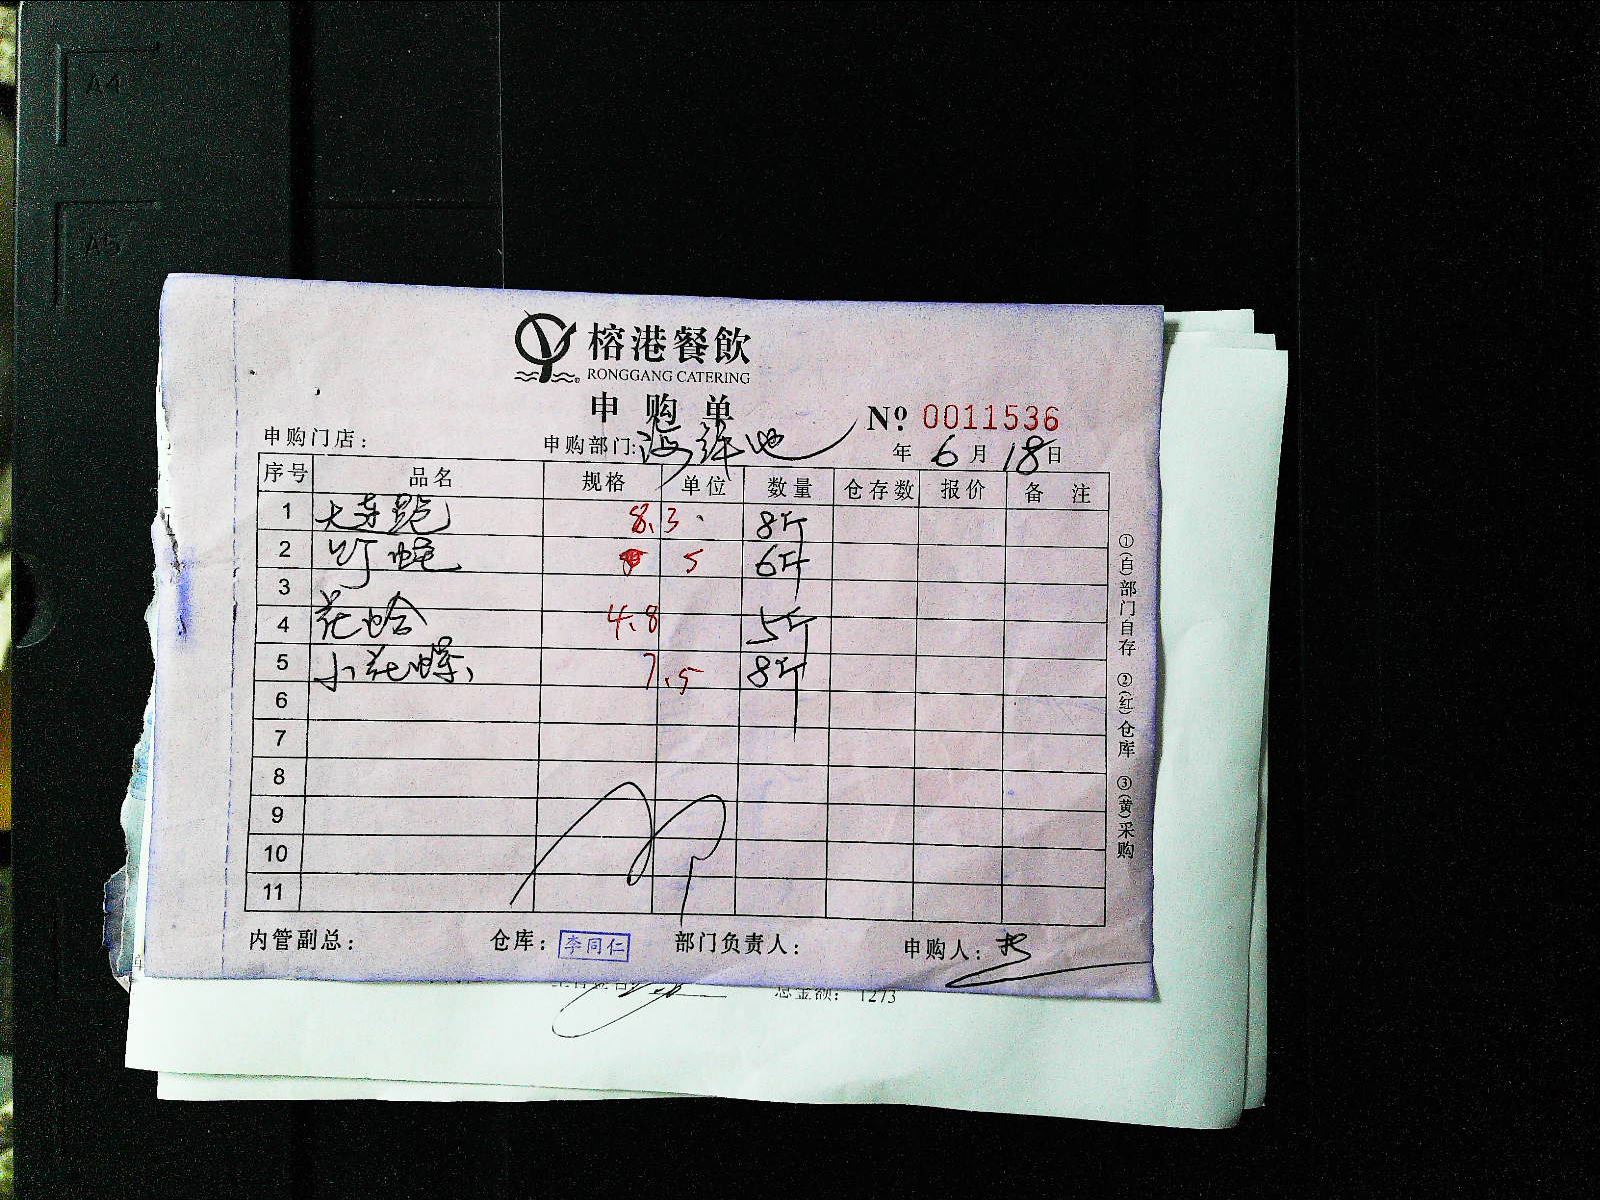 A4
A5
榕港餐飲
RONGGANG CATERING
申购单
№ 0011536
申购门店： 申购部门：海鲜池 年 6 月 18 日
序号 品名 规格 单位 数量 仓存数 报价 备 注
1 8.3 8斤
2 5 6斤
3
4 花蛤 4.8 5斤
5 小花螺 7.5 8斤
6
7
8
9
10
11
①(白)部门自存 ②(红)仓库 ③(黄)采购
内管副总： 仓库：李同仁 部门负责人： 申购人：
总金额： 1273